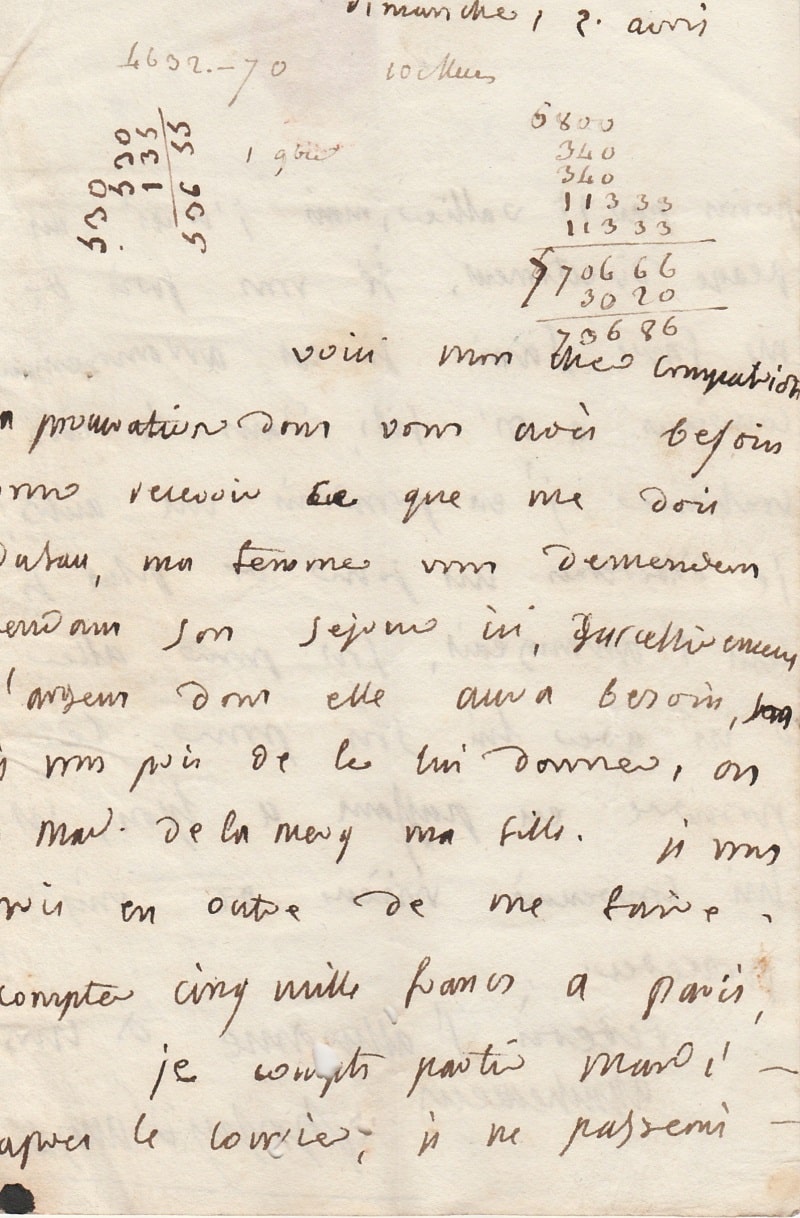 dimanche, 2. avril
4632.-70
5800
340
340
11333
11333
570666
3020
73686
530
530
135
536 55
voici mon cher compatriot
procuration dont vous avès besoin
recevoir ce que me doit
ma femme vous demendera
son sejour ici,
l'argent dont elle aura besoin,
vous prie de le lui donner, ou
Mad. de la mery ma fille. je vous
prie en outre de me faire
compter cinq mille francs a paris,
je compte partir mardi
apres le courrier, je ne passerai